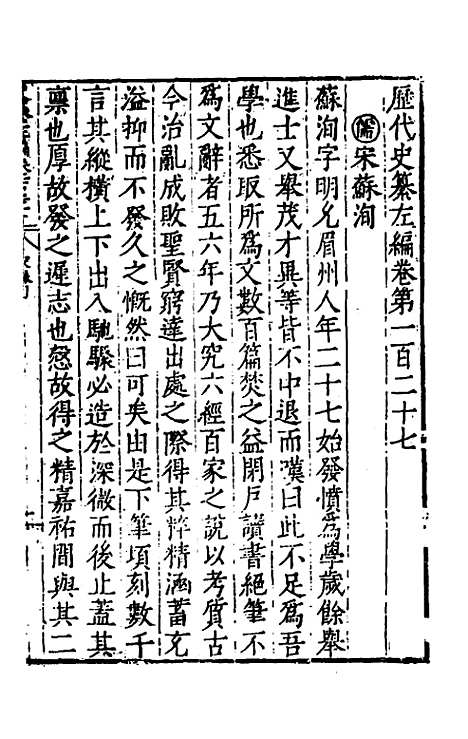 歷代史纂左編卷第一百二十七
儒宋蘇洵
蘇洵字明允眉州人年二十七始發憤爲學歲餘舉
進士又舉茂才異等皆不中退而嘆曰此不足爲吾
學也悉取所爲文數百篇焚之益閉戶讀書絕筆不
爲文辭者五六年乃大究六經百家之說以考質古
今治亂成敗聖賢窮達出處之際得其粹精涵畜充
溢抑而不發久之慨然曰可矣由是下筆頃刻數千
言其縱横上下出入馳驟必造於深微而後止蓋其
禀也厚故發之遲志也慤故得之精嘉祐間與其二